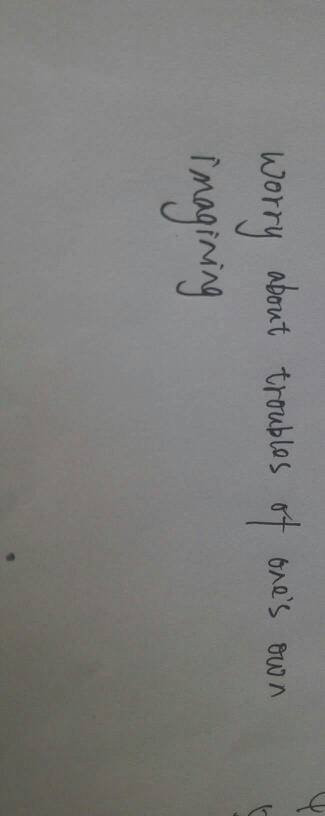 worry about troubles of one's own
imagining